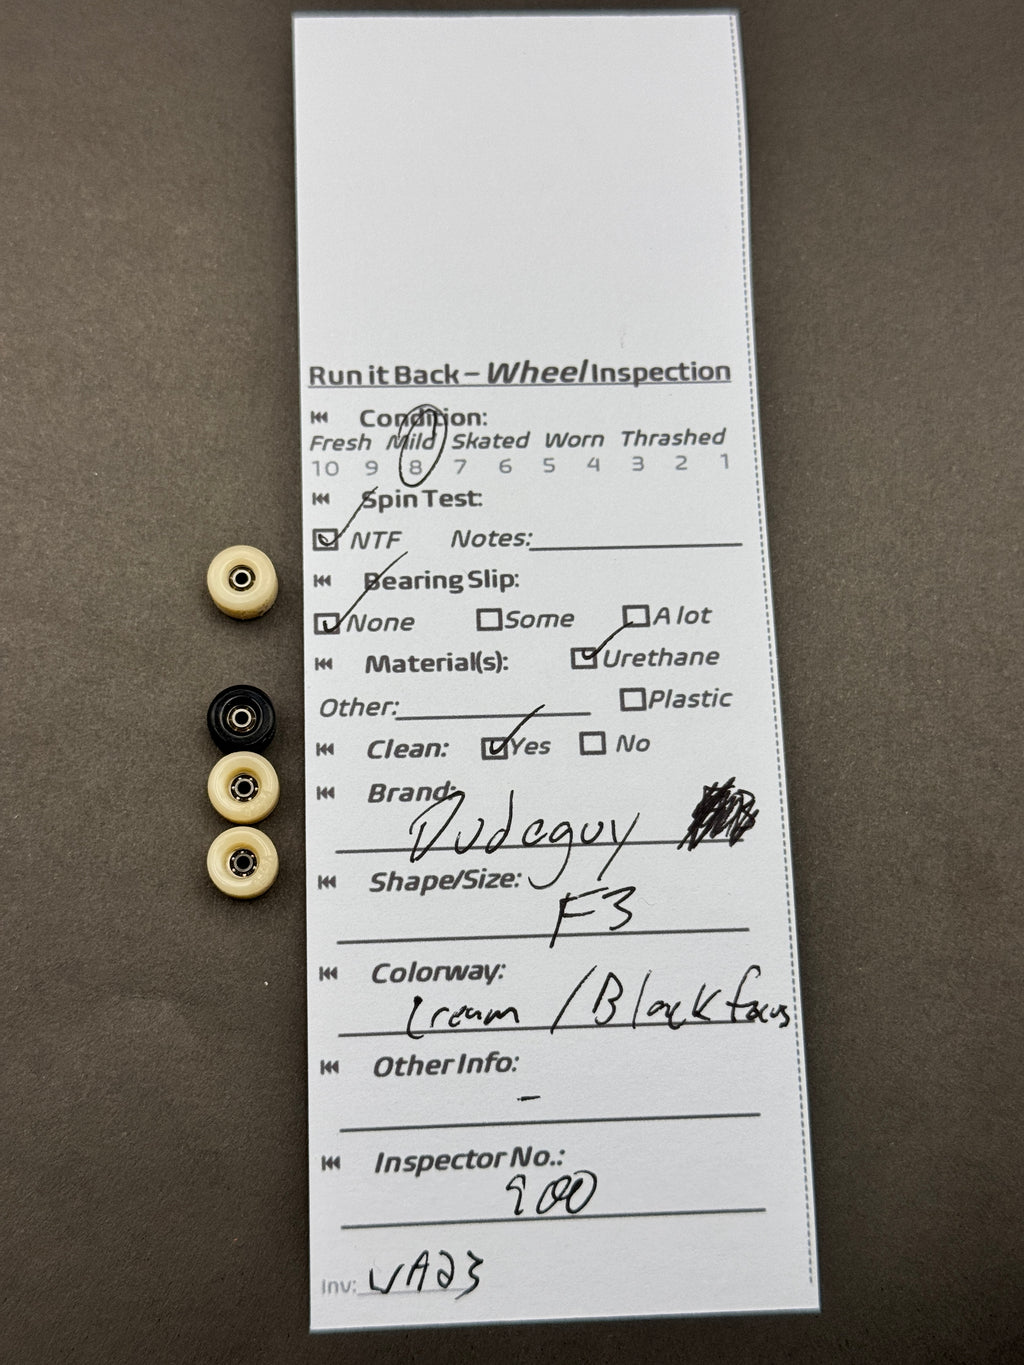 Run it Back – Wheel Inspection
Condition:
Fresh Mild Skated Worn Thrashed
10 9 8 7 6 5 4 3 2 1
Spin Test:
NTF Notes:
Bearing Slip:
None Some A lot
Material(s): Urethane
Other: Plastic
Clean: Yes No
Brand:
Dudeguy
Shape/Size:
F3
Colorway:
Cream / Black focus
Other Info:
-
Inspector No.:
900
Inv: WA23